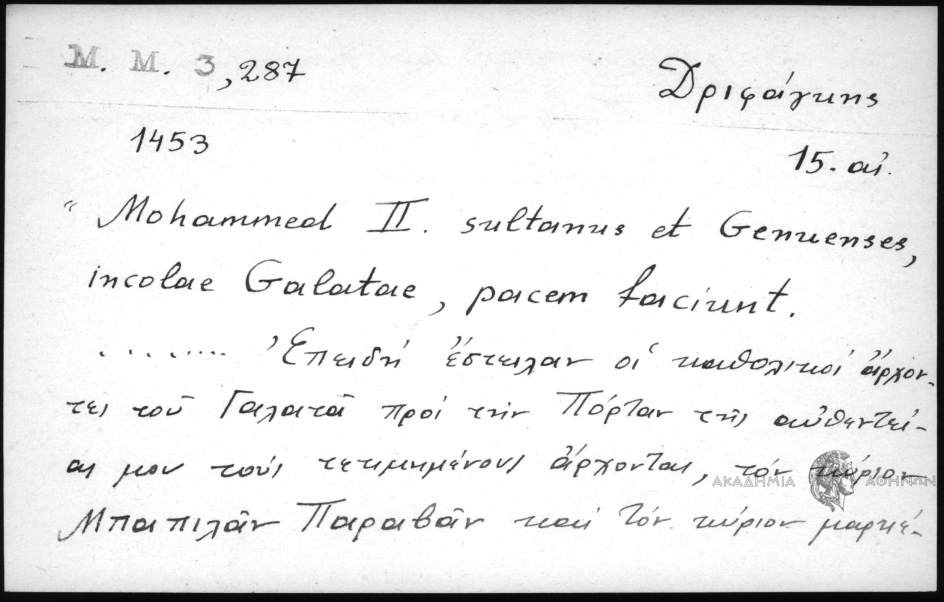 M. M. 3,287
Δριφάγκης
1453
15. αἰ.
“ Mohammed II. sultanus et Genuenses,
incolae Galatae, pacem faciunt.
........ Ἐπειδή ἔστειλαν οἱ καθολικοί ἄρχον-
τες τοῦ Γαλατᾶ πρός τήν Πόρταν τῆς αὐθεντεί-
ας μου τούς τετιμημένους ἄρχοντας, τόν κύριον
Μπαπιλᾶν Παραβᾶν καί τόν κύριον μαρκέ-
ΑΚΑΔΗΜΙΑ ΑΘΗΝΩΝ